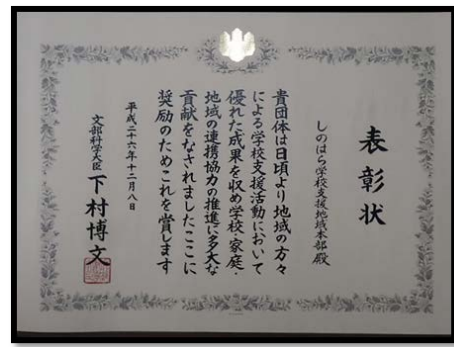 表彰状
しのはら学校支援地域本部殿
貴団体は日頃より地域の方々
による学校支援活動において
優れた成果を収め学校・家庭・
地域の連携協力の推進に多大な
貢献をなされましたここに
奨励のためこれを賞します
平成二十六年十二月八日
文部科学大臣 下村博文